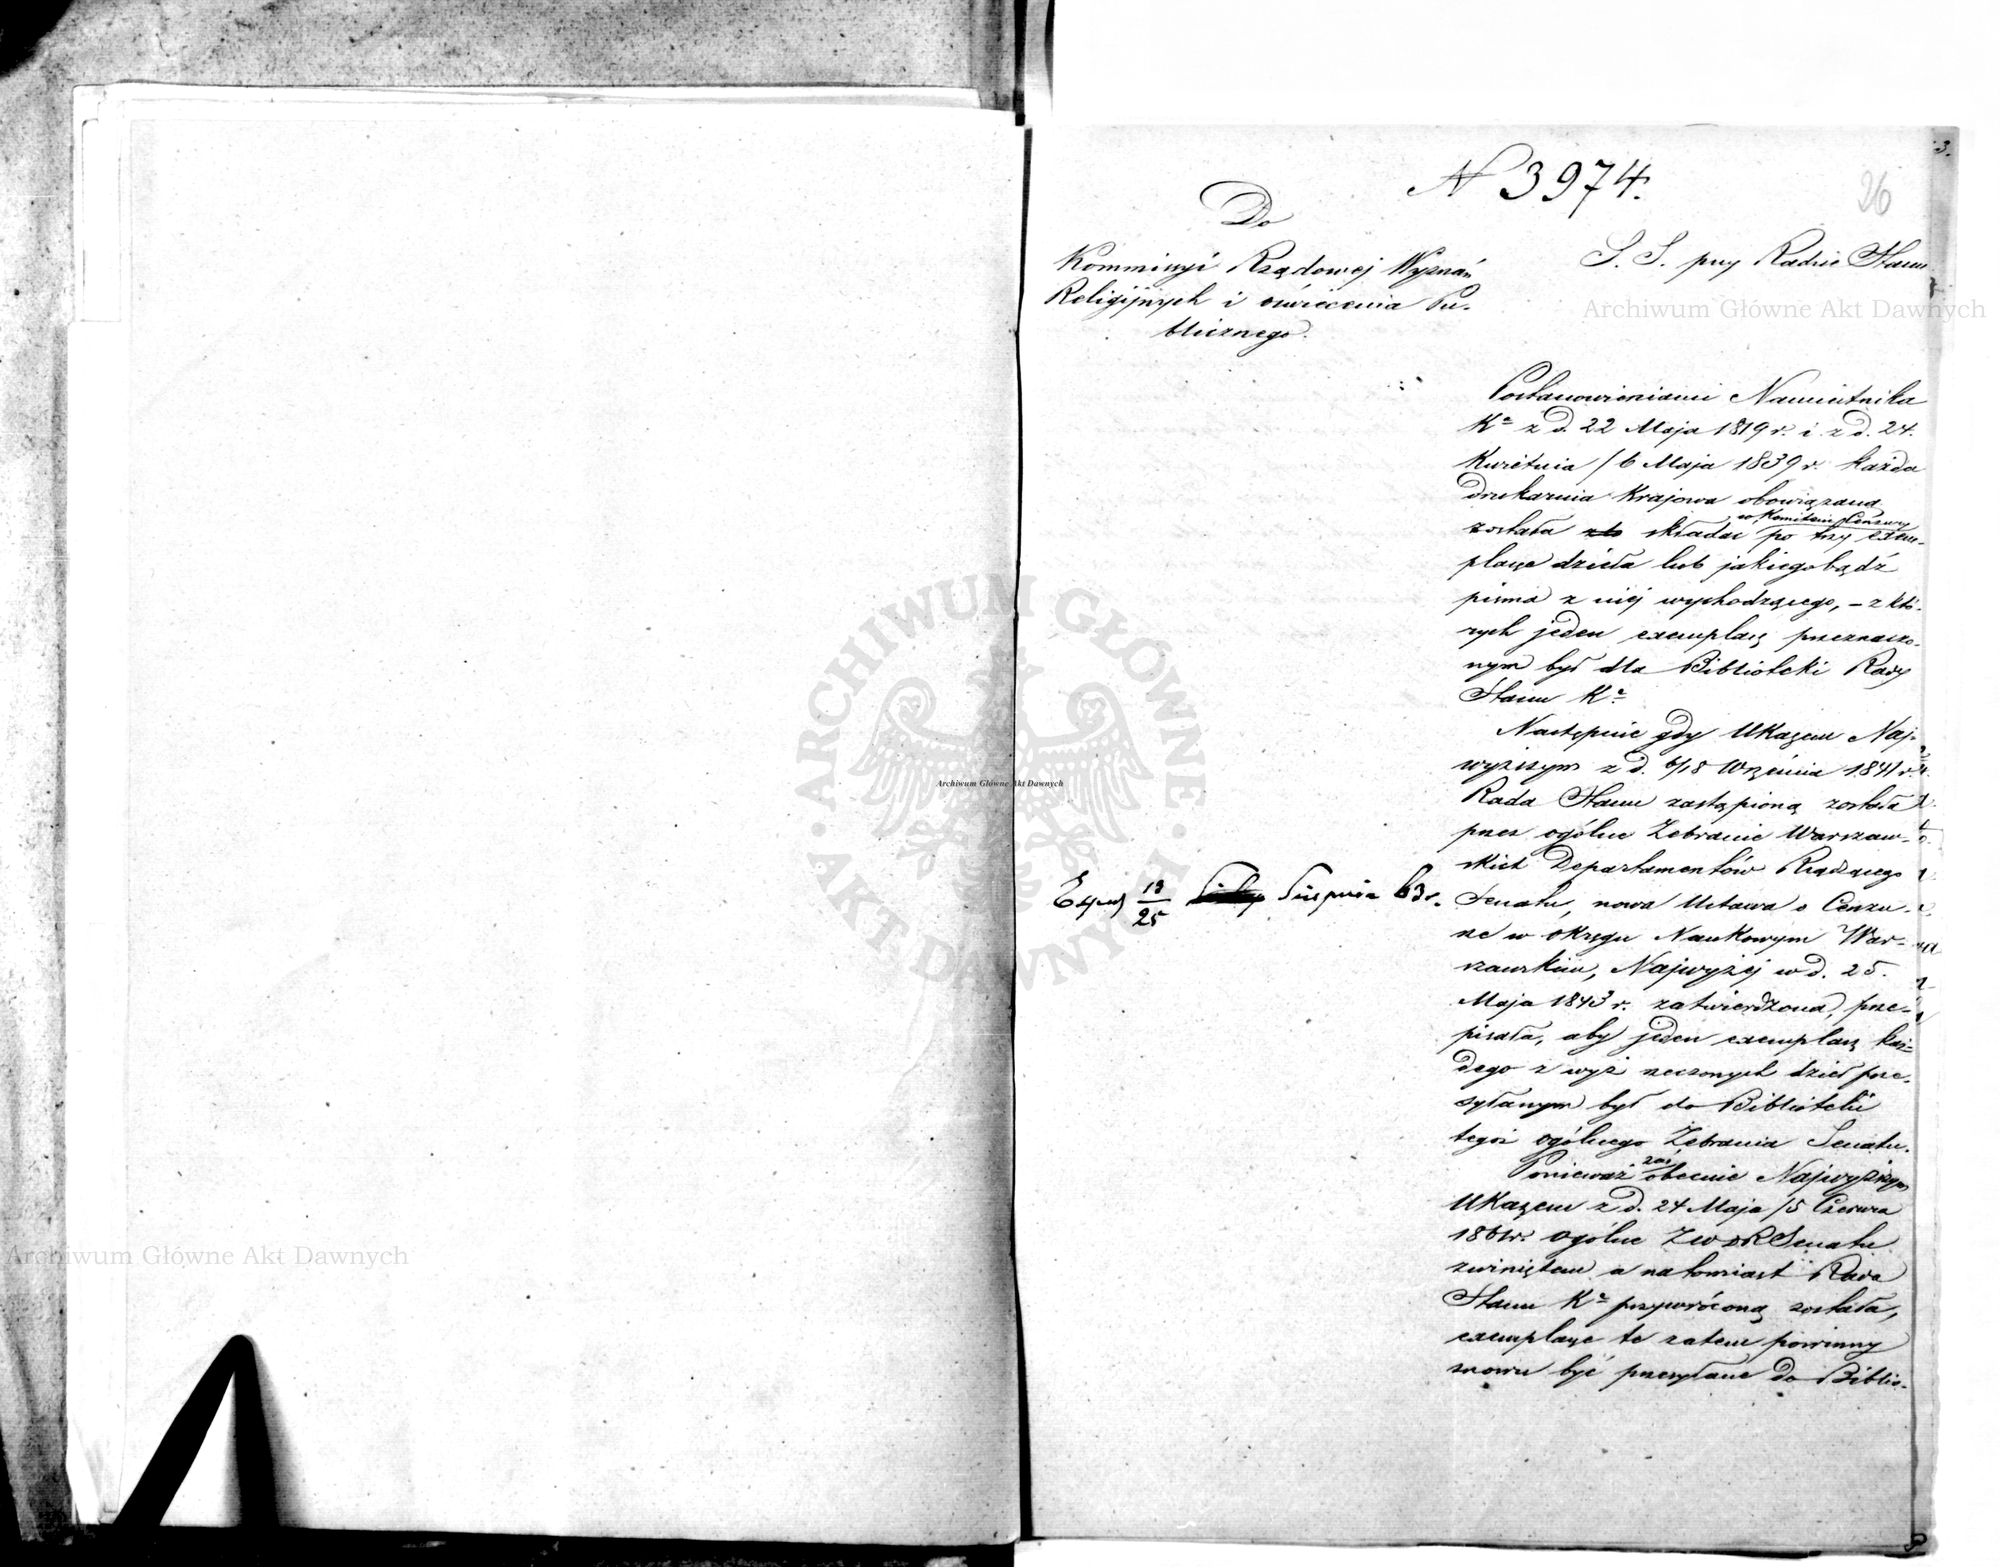 3.
N 3974.
26
Do
Kommissyi Rządowej Wyznań
Religijnych i oświecenia Pu-
blicznego.
S. S. przy Radzie Stanu
Archiwum Główne Akt Dawnych
Postanowieniami Namiestnika
Kª z d. 22 Maja 1819 r. i z d. 24.
Kwietnia /6 Maja 1839 r. każda
drukarnia Krajowa obowiązana
w Komitecie Cenzury
została składać po trzy exem-
plarze dzieła lub jakiegobądź
pisma z niej wychodzącego, – z któ-
rych jeden exemplarz przeznaczo-
nym był dla Biblioteki Rady
Stanu Kª
Następnie gdy Ukazem Naj-
wyższym z d. 6/18 Września 1841 r.
Rada Stanu zastąpioną została
przez ogólne Zebranie Warszaw-
skich Departamentów Rządzącego
Senatu, nowa Ustawa o Cenzu-
rze w okręgu Naukowym War-
szawskim, Najwyżej w d. 25.
Maja 1843 r. zatwierdzona, prze-
pisała, aby jeden exemplarz każ-
dego z wyż rzeczonych dzieł prze-
syłanym był do Biblioteki
tegoż ogólnego Zebrania Senatu.
zaś
Ponieważ obecnie Najwyższym
Ukazem z d. 24 Maja /5 Czerwca
1861 r. ogólne Z W D R Senatu
zwiniętem a natomiast Rada
Stanu Kª przywróconą została,
exemplarze te zatem powinny
znowu być przesyłane do Biblio-
Exped 13/25 Sierpnia 63 r.
ARCHIWUM GŁÓWNE AKT DAWNYCH
Archiwum Główne Akt Dawnych
Archiwum Główne Akt Dawnych